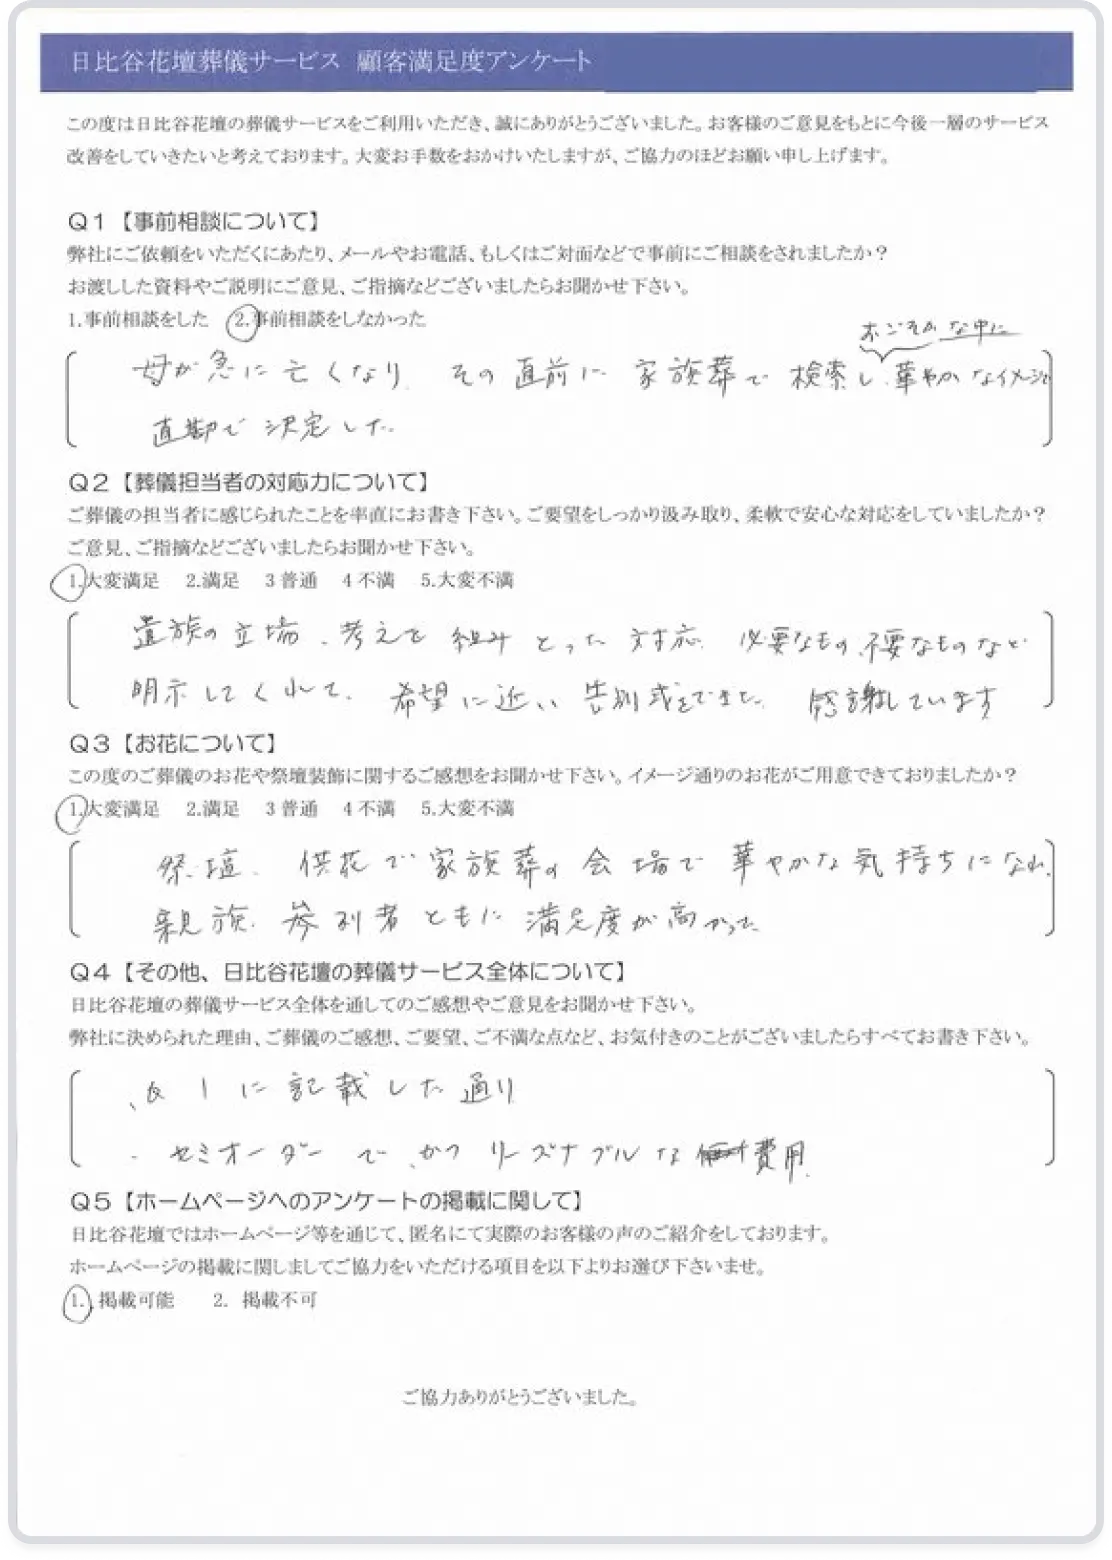 日比谷花壇葬儀サービス 顧客満足度アンケート
この度は日比谷花壇の葬儀サービスをご利用いただき、誠にありがとうございました。お客様のご意見をもとに今後一層のサービス
改善をしていきたいと考えております。大変お手数をおかけいたしますが、ご協力のほどお願い申し上げます。
Q1【事前相談について】
弊社にご依頼をいただくにあたり、メールやお電話、もしくはご対面などで事前にご相談をされましたか?
お渡しした資料やご説明にご意見、ご指摘などございましたらお聞かせ下さい。
1.事前相談をした 2.事前相談をしなかった
おごそかな中に
母が急に亡くなり、その直前に家族葬で検索し、華やかなイメージで
直勘で決定した。
Q2【葬儀担当者の対応力について】
ご葬儀の担当者に感じられたことを率直にお書き下さい。ご要望をしっかり汲み取り、柔軟で安心な対応をしていましたか?
ご意見、ご指摘などございましたらお聞かせ下さい。
1.大変満足 2.満足 3普通 4不満 5.大変不満
遺族の立場、考えを組みとった対応。必要なもの、不要なものなど
明示してくれて、希望に近い告別式をできた。感謝しています
Q3【お花について】
この度のご葬儀のお花や祭壇装飾に関するご感想をお聞かせ下さい。イメージ通りのお花がご用意できておりましたか?
1.大変満足 2.満足 3普通 4不満 5.大変不満
祭壇、供花で家族葬の会場で華やかな気持ちになれ、
親族、参列者ともに満足度が高かった。
Q4【その他、日比谷花壇の葬儀サービス全体について】
日比谷花壇の葬儀サービス全体を通してのご感想やご意見をお聞かせ下さい。
弊社に決められた理由、ご葬儀のご感想、ご要望、ご不満な点など、お気付きのことがございましたらすべてお書き下さい。
、Q1に記載した通り
・セミオーダーで、かつリーズナブルな費用
Q5【ホームページへのアンケートの掲載に関して】
日比谷花壇ではホームページ等を通じて、匿名にて実際のお客様の声のご紹介をしております。
ホームページの掲載に関しましてご協力をいただける項目を以下よりお選び下さいませ。
1. 掲載可能 2. 掲載不可
ご協力ありがとうございました。